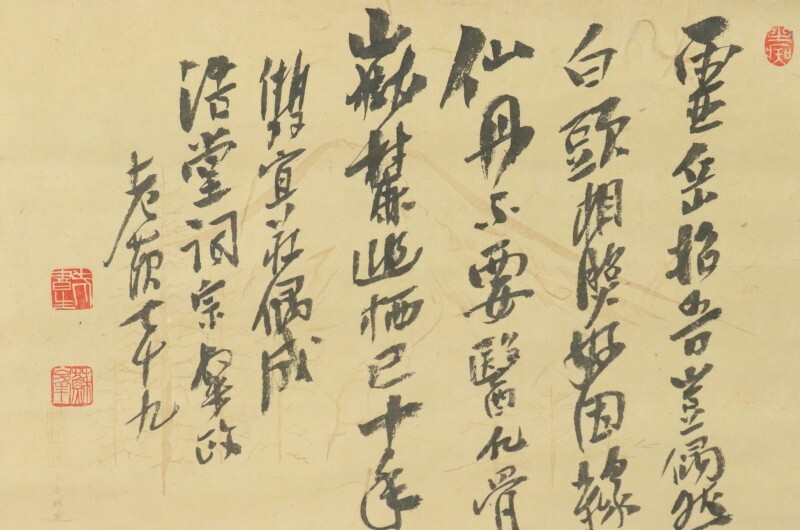 靈岳招吾豈偶然
白頭相照好因緣
仙丹不要醫凡骨
嶽麓幽栖已十年
雙宜莊偶成
浩堂詞宗粲政
老蘇七十九